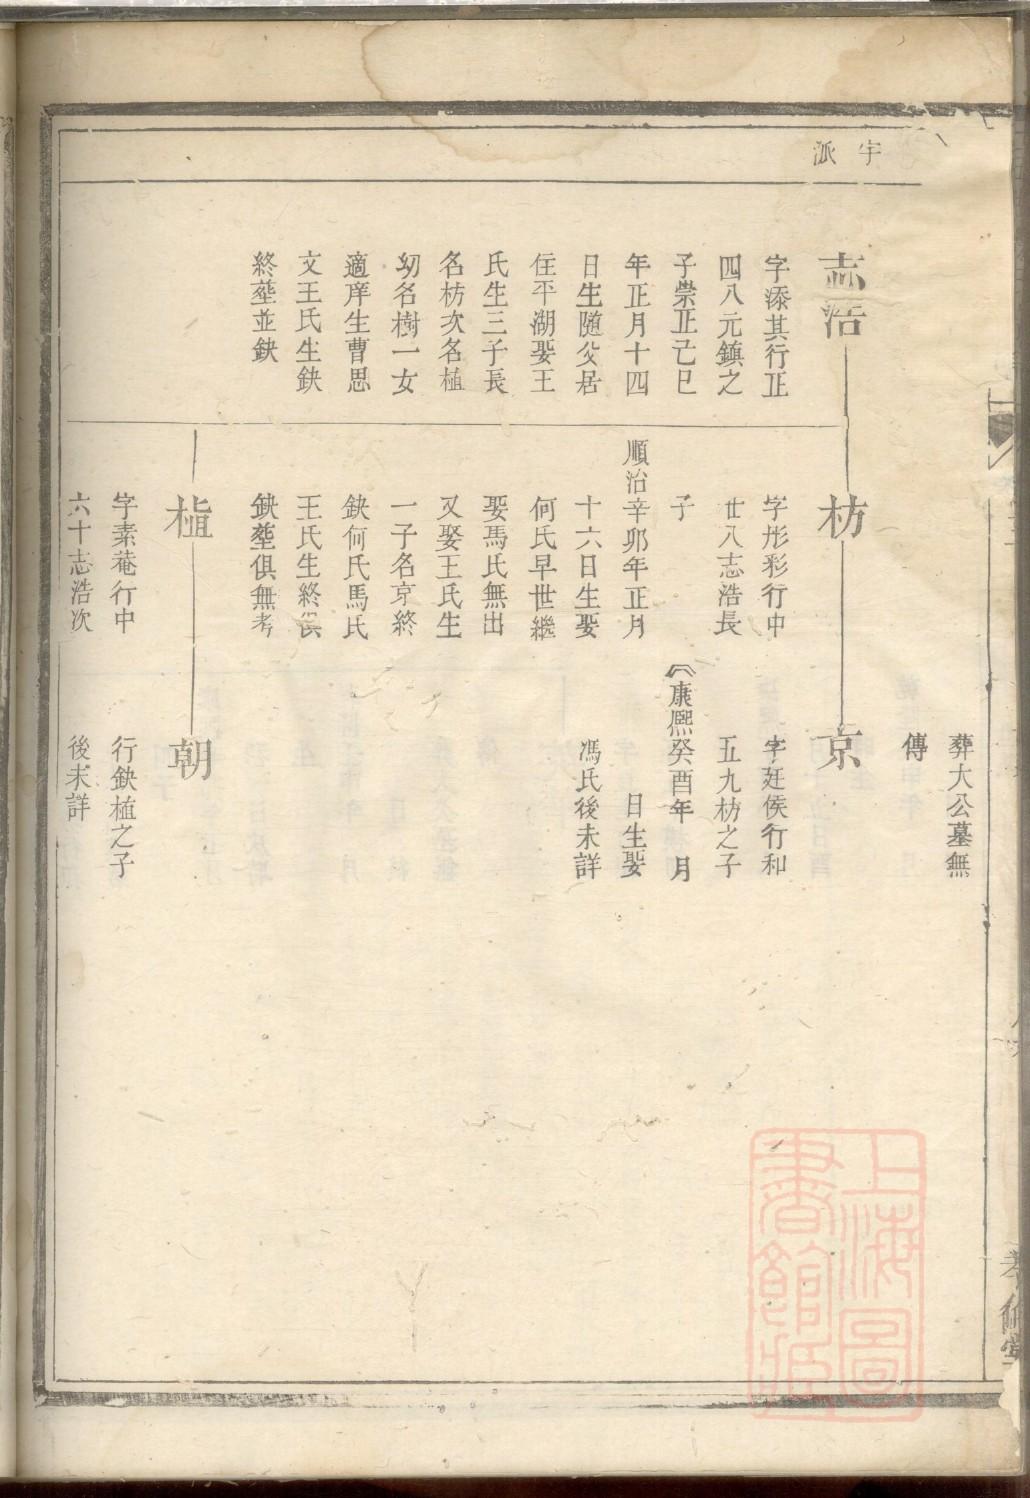 宇派
葬大公墓無
傳
志浩
字添其行正
四八元鎮之
子崇正己巳
年正月十四
日生隨父居
住平湖娶王
氏生三子長
名枋次名植
幼名樹一女
適庠生曹思
文王氏生鈌
終塟並鈌
枋
字彤彩行中
廿八志浩長
子
順治辛卯年正月
十六日生娶
何氏早世繼
娶馬氏無出
又娶王氏生
一子名京終
鈌何氏馬氏
王氏生終俱
鈌塟俱無考
京
字廷侯行和
五九枋之子
康熈癸酉年 月
日生娶
馮氏後未詳
植
字素菴行中
六十志浩次
朝
行鈌植之子
後未詳
上海圖
書館藏